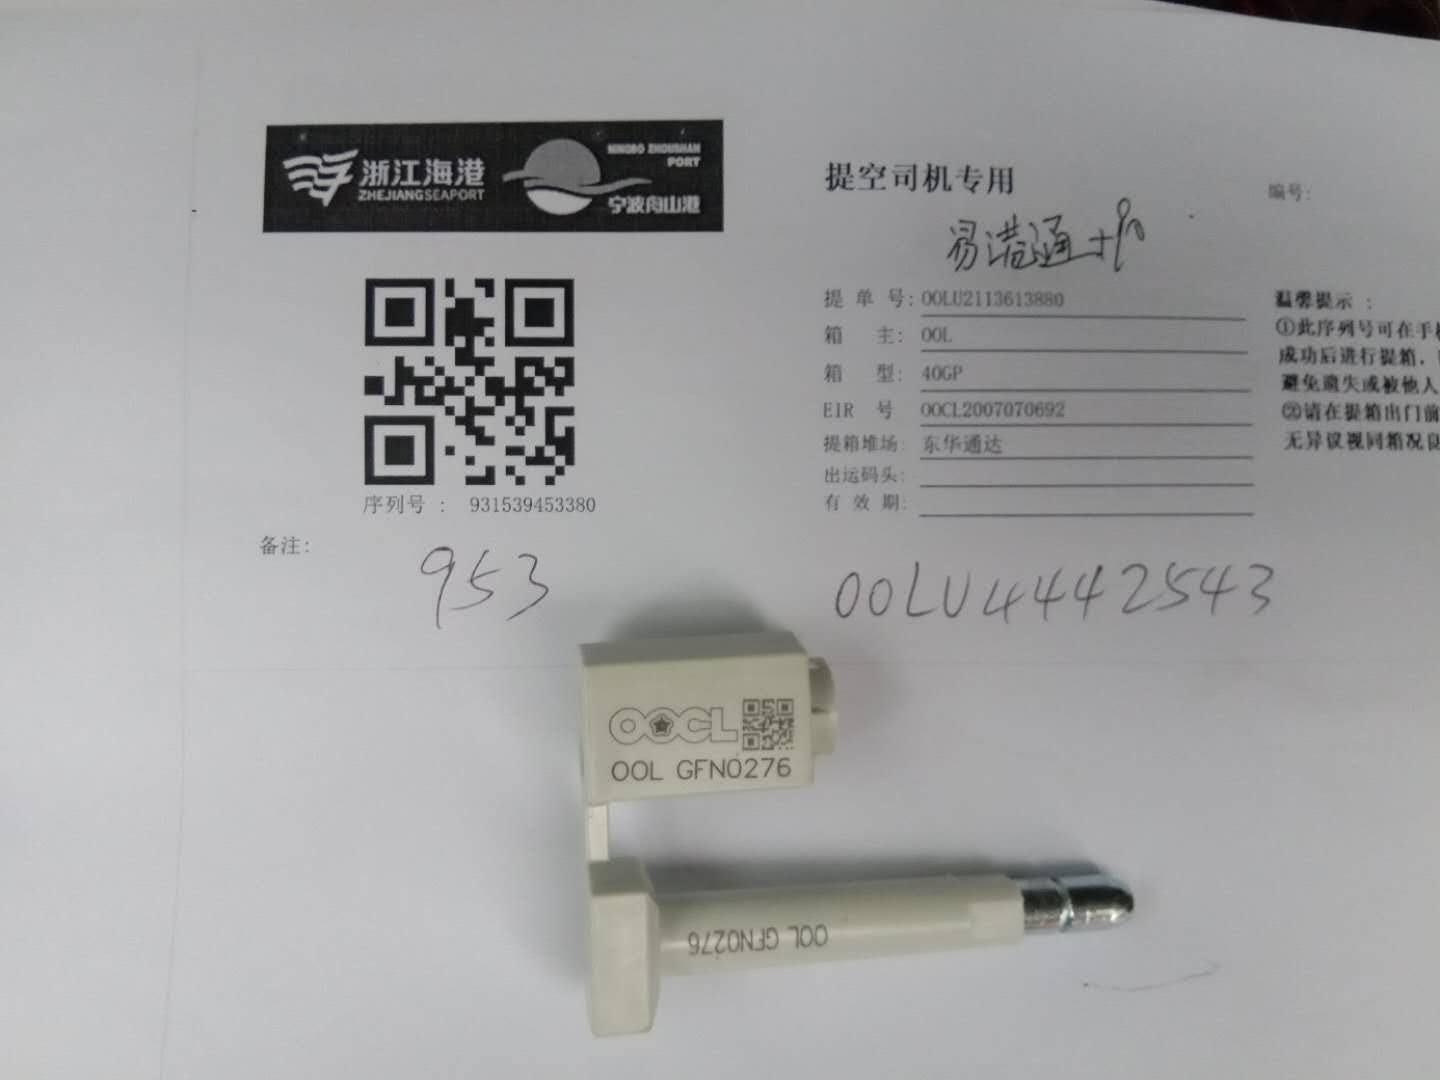 浙江海港
ZHEJIANGSEAPORT
NINGBO ZHOUSHAN
PORT
宁波舟山港
提空司机专用
编号:
易港通
提 单 号: OOLU2113613880
箱 主: OOL
箱 型: 40GP
EIR 号 OOCL2007070692
提箱堆场: 东华通达
出运码头:
有 效 期:
温馨提示 :
①此序列号可在手
成功后进行提箱,
避免遗失或被他人
②请在提箱出门前
无异议视同箱况良
序列号 : 931539453380
备注:
953
OOLU4442543
OOCL
OOL GFN0276
OOL GFN0276